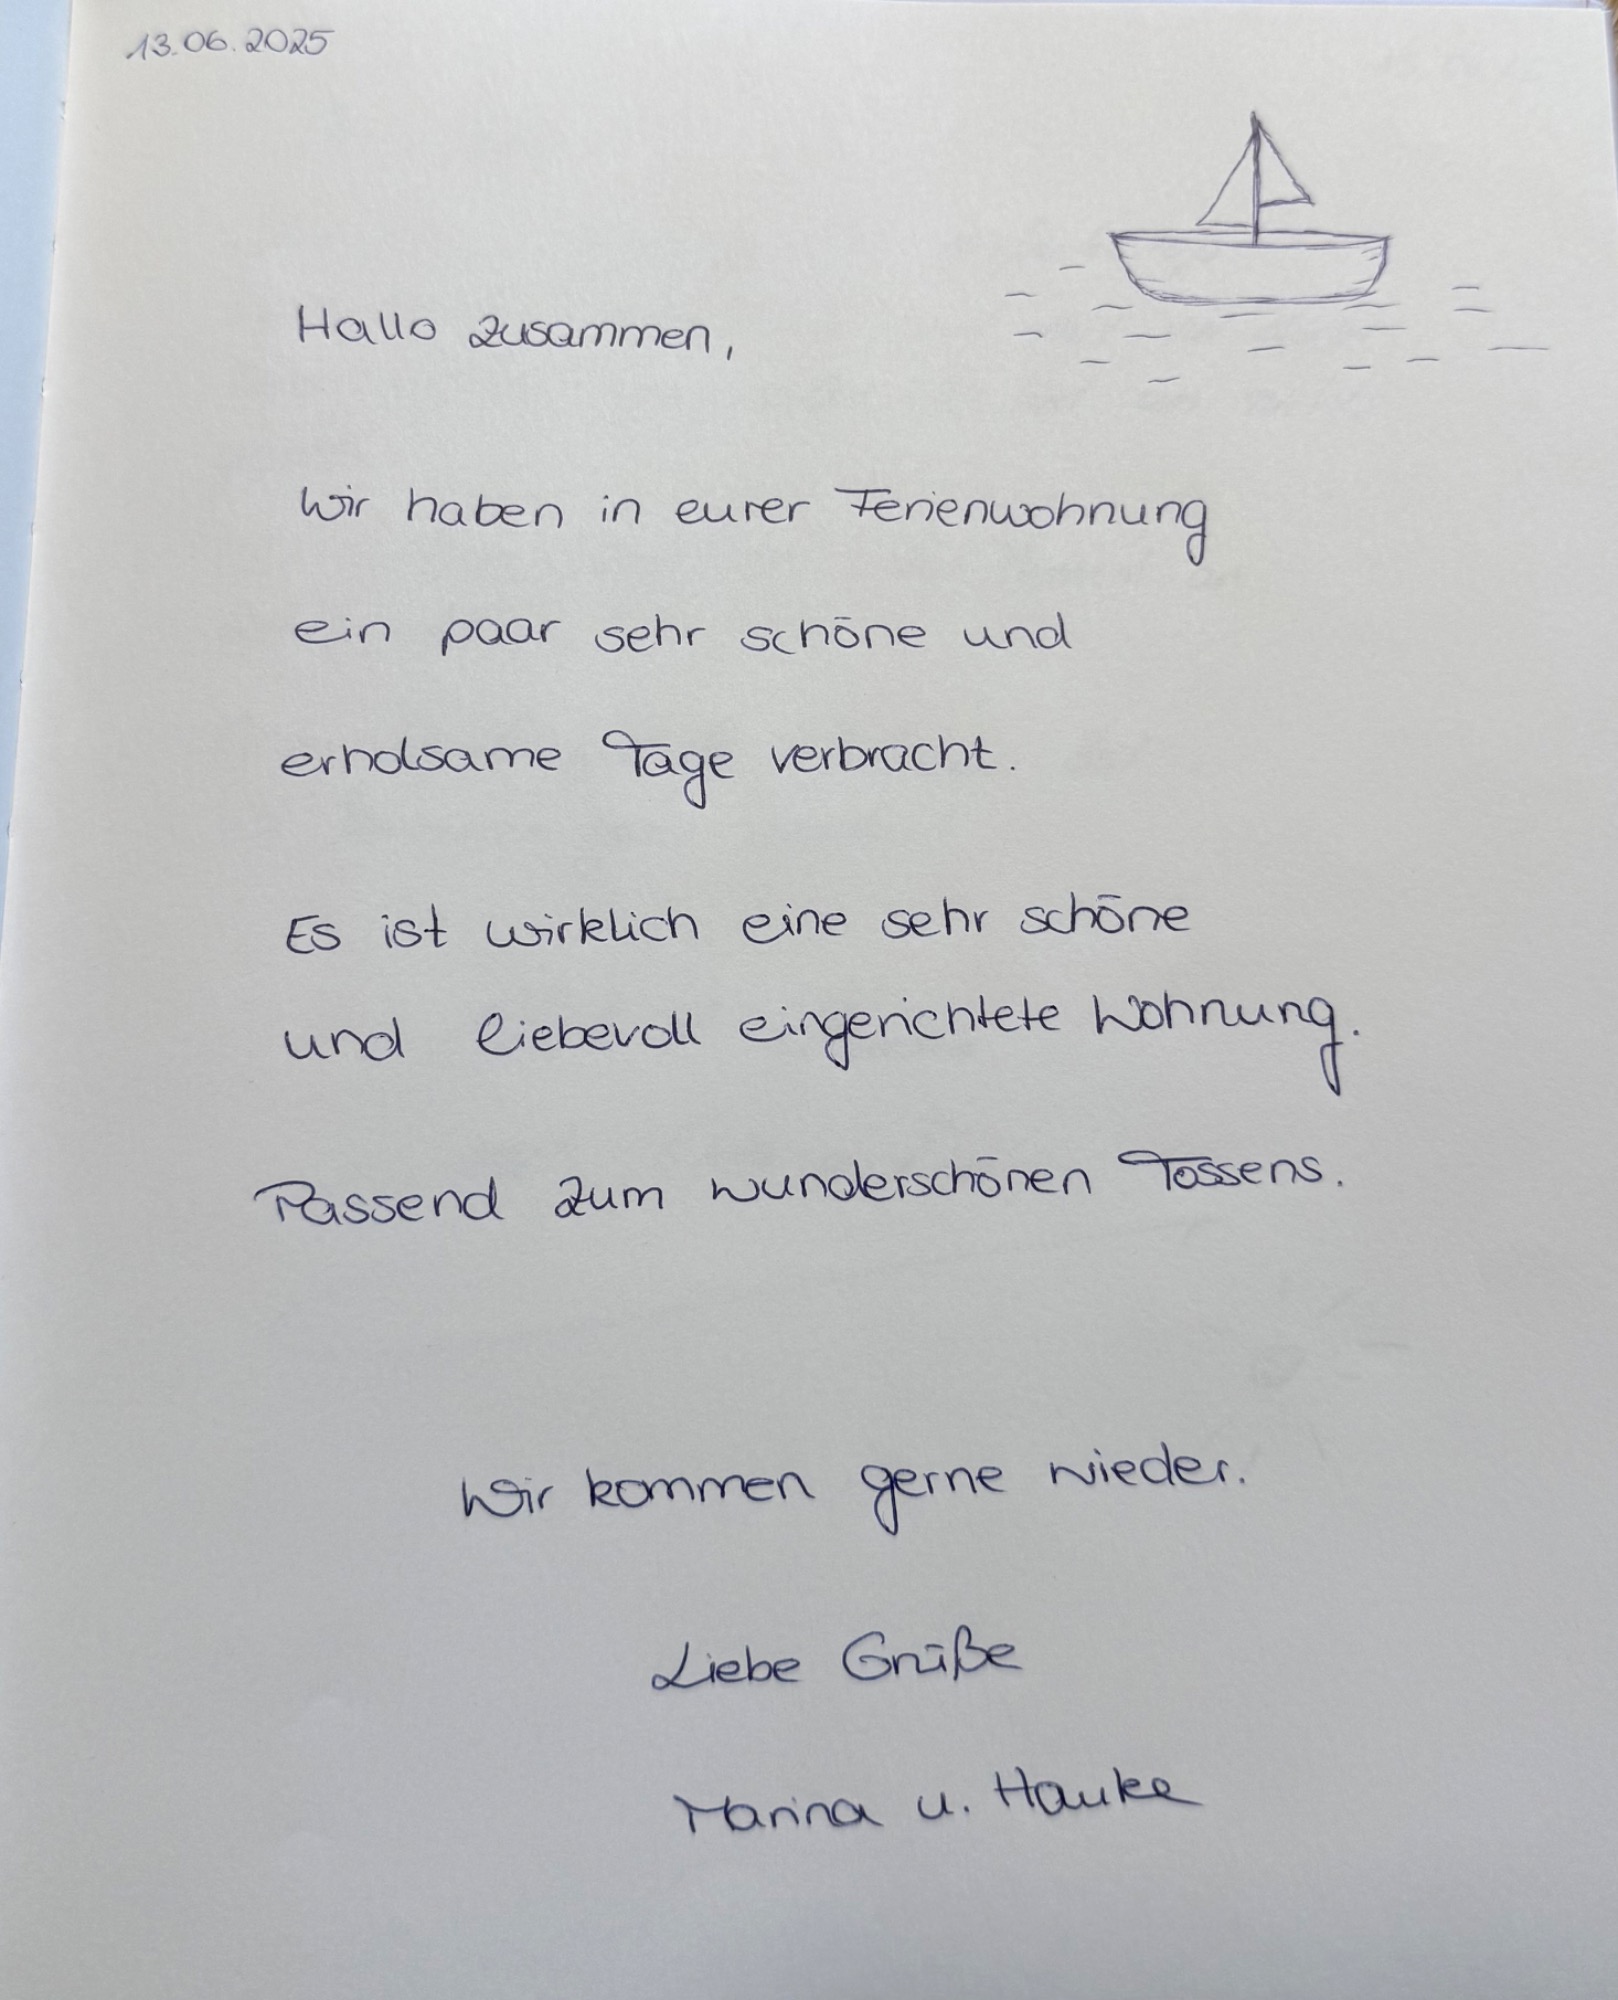 13.06.2025
Hallo zusammen,
Wir haben in eurer Ferienwohnung
ein paar sehr schöne und
erholsame Tage verbracht.
Es ist wirklich eine sehr schöne
und liebevoll eingerichtete Wohnung.
Passend zum wunderschönen Tossens.
Wir kommen gerne wieder.
Liebe Grüße
Marina u. Hauke